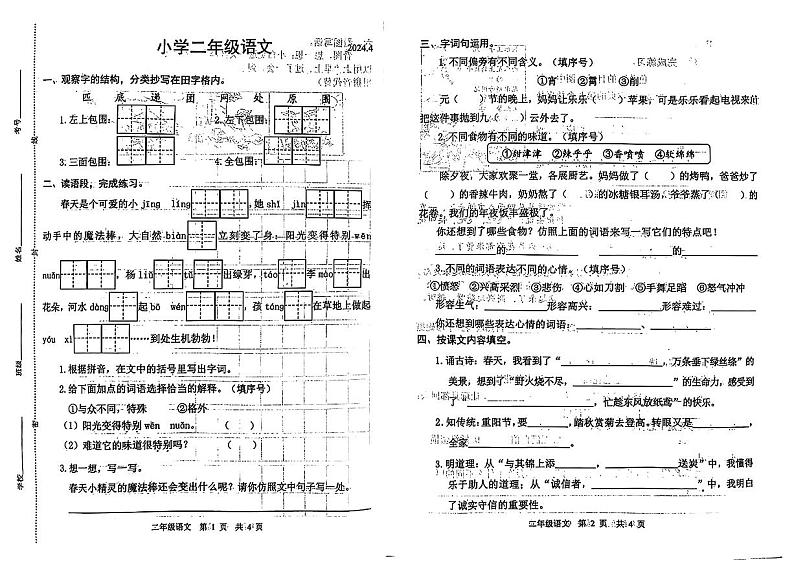 小学二年级语文
2024.4
一、观察字的结构，分类抄写在田字格内。
匹 底 递 团 网 处 原 图
1.左上包围：
2.左下包围：
3.三面包围：
4.全包围：
二、读语段，完成练习。
春天是个可爱的小 jīng líng ，她 shǐ jìn 挥
动手中的魔法棒，大自然 biàn 立刻变了身：阳光变得特别 wēn
nuǎn ，杨 liǔ tǔ 出绿芽，táo 李 出
花朵，河水 dàng 起 bō wén ，孩 tóng 在草地上做起
yóu xì ……到处生机勃勃！
1.根据拼音，在文中的括号里写出字词。
2.给下面加点的词语选择恰当的解释。（填序号）
①与众不同，特殊 ②格外
(1) 阳光变得特别 wēn nuǎn。 （ ）
(2) 难道它的味道很特别吗？ （ ）
3.想一想，写一写。
春天小精灵的魔法棒还会变出什么呢？请你仿照文中句子写一写。
二年级语文 第 1 页 共 4 页
学校
班级
姓名
考号
三、字词句运用。
1.不同偏旁有不同含义。（填序号）
①宵 ②霄 ③削
元（ ）节的晚上，妈妈让乐乐（ ）苹果，可是乐乐看起电视来的
把这件事抛到九（ ）云外去了。
2.不同食物有不同的味道。（填序号）
①甜津津 ②辣乎乎 ③香喷喷 ④软绵绵
除夕夜，大家欢聚一堂，各展厨艺。妈妈做了（ ）的烤鸭，爸爸炒了
（ ）的香辣牛肉，奶奶熬了（ ）的冰糖银耳汤，爷爷蒸了（ ）的
花卷。我们的年夜饭丰盛极了。
你还想到了哪些食物？仿照上面的词语来写一写它们的特点吧！
的 的
3.不同的词语表达不同的心情。（填序号）
①愤怒 ②兴高采烈 ③悲伤 ④心如刀割 ⑤手舞足蹈 ⑥怒气冲冲
形容生气： 形容高兴： 形容难过：
你还想到哪些表达心情的词语： 、
四、按课文内容填空。
1.诵古诗：春天，我看到了“ ，万条垂下绿丝绦”的
美景，想到了“野火烧不尽， ”的生命力，感受到
了“ ，忙趁东风放纸鸢”的快乐。
2.知传统：重阳节，要 ，踏秋赏菊去登高。转眼又是 ，
全家 。
3.明道理：从“与其锦上添 ， 送炭”中，我懂得
乐于助人的道理；从“诚信者， ”中，我明白
了诚实守信的重要性。
二年级语文 第 2 页 共 4 页